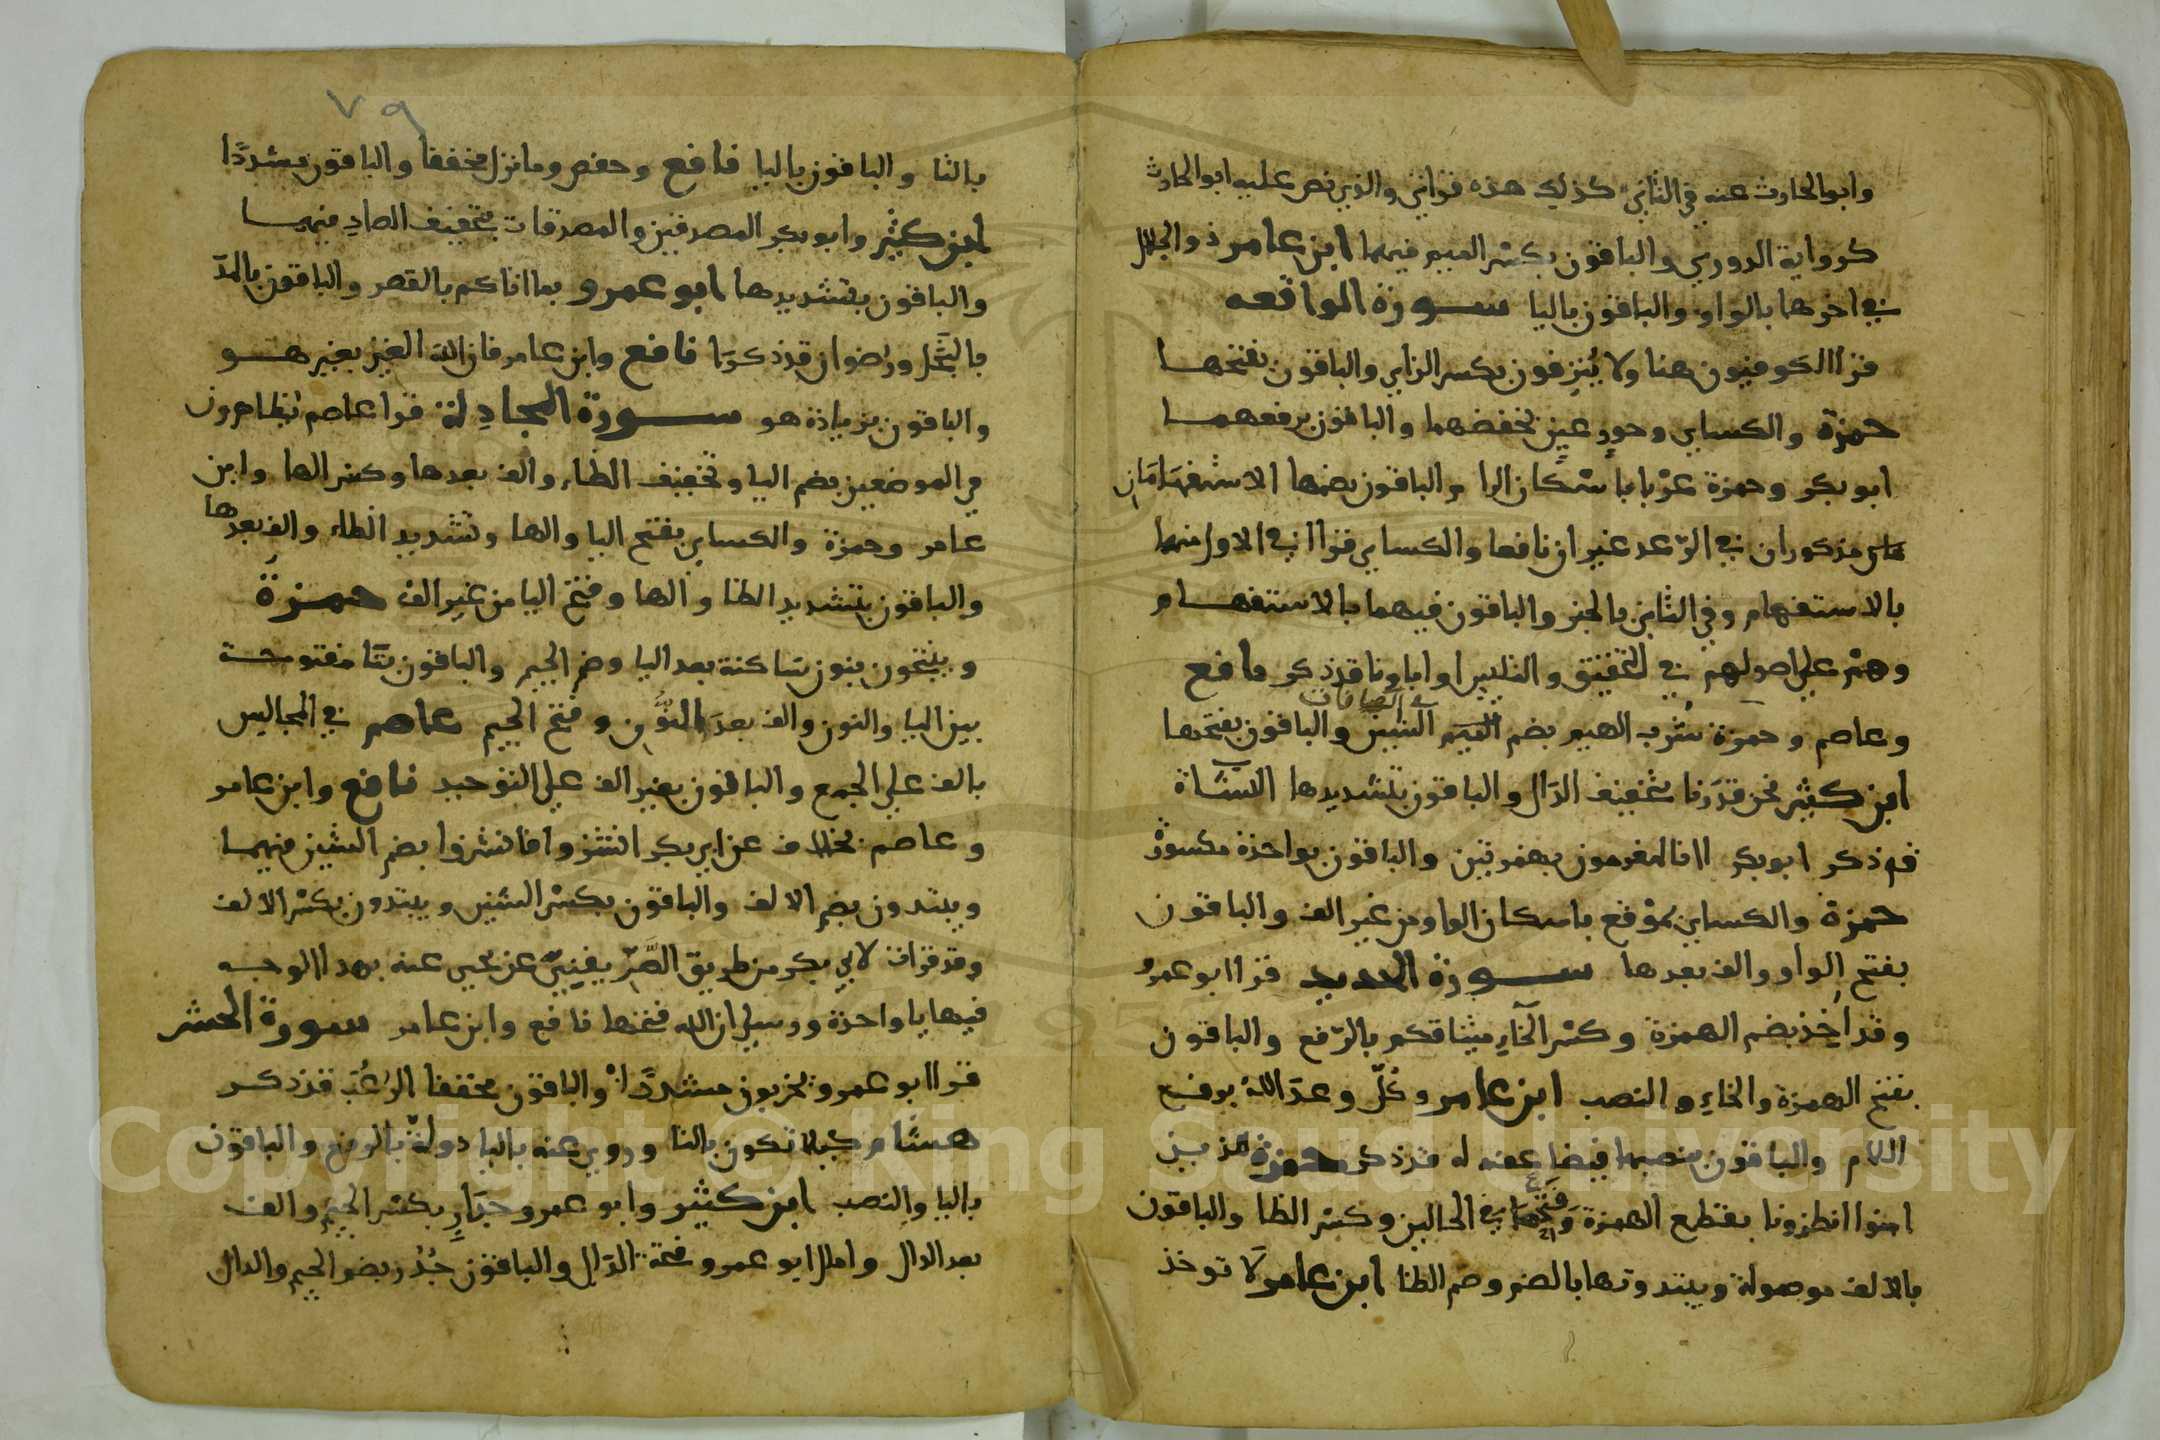 وابو الحارث عنه في الثاني كذلك هذه قراتي والذي نص عليه ابو الحارث
كرواية الدوري والباقون بكسر الميم فيهما ابن عامر ذو الجلال
في اخرها بالواو والباقون باليا سورة الواقعه
قرا الكوفيون هنا ولا يُنزِفون بكسر الزاي والباقون بفتحها
حمزة والكساي وحورٍ عينٍ بخفضهما والباقون برفعهما
ابو بكر وحمزة عرْبا باسْكان الرا والباقون بضمها الاستفهامان
مذكوران في الرّعد غير ان نافعا والكساي قراا في الاول منهما
بالاستفهام وفي الثاني بالخبر والباقون فيهما بالاستفهام
وهمْ علي اصولهم في التحقيق والتليين او اباونا قد ذكر نافع
وعاصم وحمزة شُرب الهيم بضم الشين والباقون بفتحها
ابن كثير نحن قدَرنا بتخفيف الدال والباقون بتشديدها النشاة
قد ذكر ابو بكر اانا لمغرمون بهمزتين والباقون بواحدة مكسورة
حمزة والكساي بموْقع باسكان الواو من غير الف والباقون
بفتح الواو والف بعدها سورة الحديد قرا ابو عمرو
وقد اُخِذ بضم الهمزة وكسر الخاءِ ميثاقكم بالرّفع والباقون
بفتح الهمزة والخاءِ والنصب ابن عامر وكلّ وعدَ الله برفع
اللام والباقون بنصبها فيضاعفه له قد ذكر حمزة للذين
امنوا انظرونا بقطع الهمزة وَفتحها في الحالين وكسر الظا والباقون
بالالف موصولة ويبتدونها بالضم وضم الظا ابن عامر لا توخذ
٧٩
بالتا والباقون باليا نافع وحفص وما نزل مخففا والباقون مشددًا
ابن كثير وابو بكر المصدقين والمصدقات بتخفيف الصاد فيهما
والباقون بتشديدها ابو عمرو بما اتاكم بالقصر والباقون بالمدّ
بالبخل ورضوان قد ذكرَا نافع وابن عامر فان الله الغني بغير هو
والباقون بزيادة هو سورة المجادلة قرا عاصم يُظاهرون
في الموضعين بضم اليا وتخفيف الظاء والف بعدها وكسر الها وابن
عامر وحمزة والكساي بفتح اليا والها وتشديد الظاء والف بعدها
والباقون بتشديد الظا والها وفتح اليا من غير الف حمزة
وينتجون بنون سَاكنة بعد اليا وضم الجيم والباقون بتَا مفتوحة
بين اليا والنون والف بعدَ النون وفتح الجيم عاصم في المجالس
بالف علي الجمع والباقون بغير الف علي التوحيد نافع وابن عامر
وعاصم بخلاف عن ابي بكر انشزوا فانشزوا بضم الشين فيهما
ويبتدون بضم الالف والباقون بكسْر الشين ويبتدون بكسْر الالف
وقد قرات لابي بكر من طريق الصَّرِيفِينيّ عن يحيي عنه بهذا الوجه
فيها يا واحدة ورسلي ان الله فتحها نافع وابن عامر سورة الحشر
قرا ابو عمرو يخرّبون مشددًا والباقون مخففا الرعُبَ قد ذكر
هشام كيلا تكون بالتا وروي عنه باليا دولةٌ بالرفع والباقون
باليا والنصب ابن كثير وابو عمرو جدَارٍ بكسْر الجيم والف
بعد الدال وامال ابو عمرو فتحة الدَال والباقون جُدُر بضم الجيم والدال